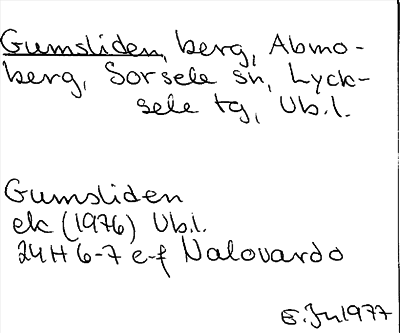 Gumsliden, berg, Abmo-
berg, Sorsele sn, Lyck-
sele tg, Vb.l.
Gumsliden
ek (1976) Vb.l.
24H 6-7 e-f Nalovardo
1977